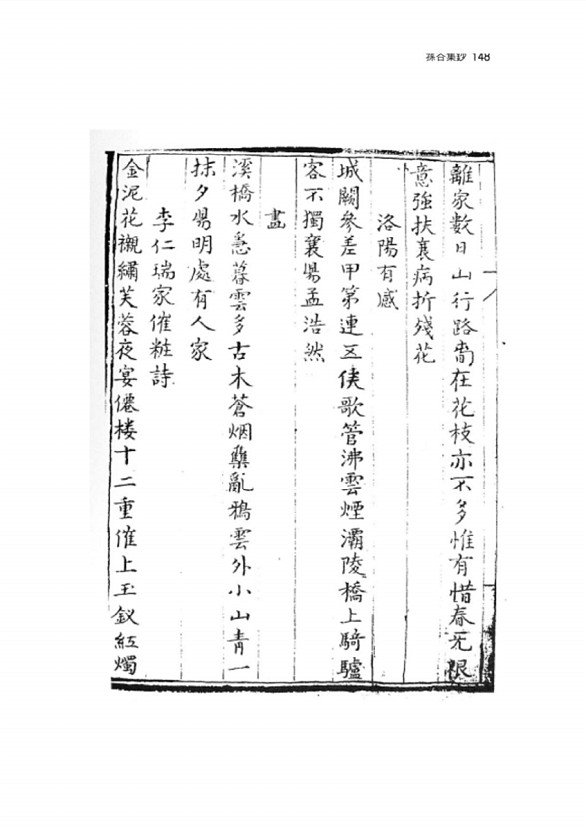 孫合集鈔 148
離家数日山行路在花枝亦不多惟有惜春无限
意強扶衰病折殘花
洛陽有感
城闕參差甲第連五侯歌管沸雲煙灞陵橋上騎驢
客不獨襄陽孟浩然
畫
溪橋水急暮雲多古木蒼烟集亂鴉雲外小山青一
抹夕陽明處有人家
李仁瑞家催粧詩
金泥花襯繡芙蓉夜宴僊楼十二重催上玉釵紅燭